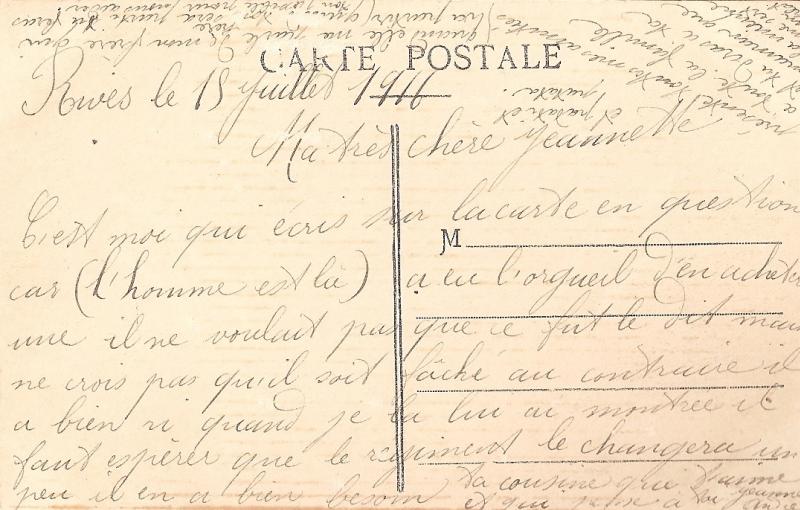 CARTE POSTALE
Rives le 15 juillet 1916
Ma très chère Jeannette
C'est moi qui écris sur la carte en question
car (l'homme est là) a eu l'orgueil d'en acheter
une il ne voulait pas que ce fut le dit mais
ne crois pas qu'il soit fâché au contraire il
a bien ri quand je la lui ai montrée il
faut espérer que le régiment le changera un
peu il en a bien besoin
M
Ta cousine qui t'aime
et qui pense à toi Jeanne
présente toutes mes amitiés
à toute la famille
et tu diras à ta
et patati et
patata.
quand elle ma parlé de mon frère qui